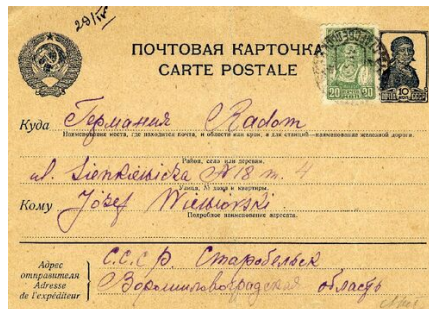 29/IV
ПОЧТОВАЯ КАРТОЧКА
CARTE POSTALE
20 20
ПОЧТА 10 СССР
Куда Германия Radom
Наименование места, где находится почта, и области или края, а для станций—наименование железной дороги.
Район, село или деревня.
ul. Sienkiewicza № 18 m. 4
Улица, № дома и квартиры.
Кому Józef Wiewiórski
Подробное наименование адресата.
Адрес
отправителя
Adresse
de l'expéditeur
С.С.С.Р. Старобельск
Ворошиловградская область